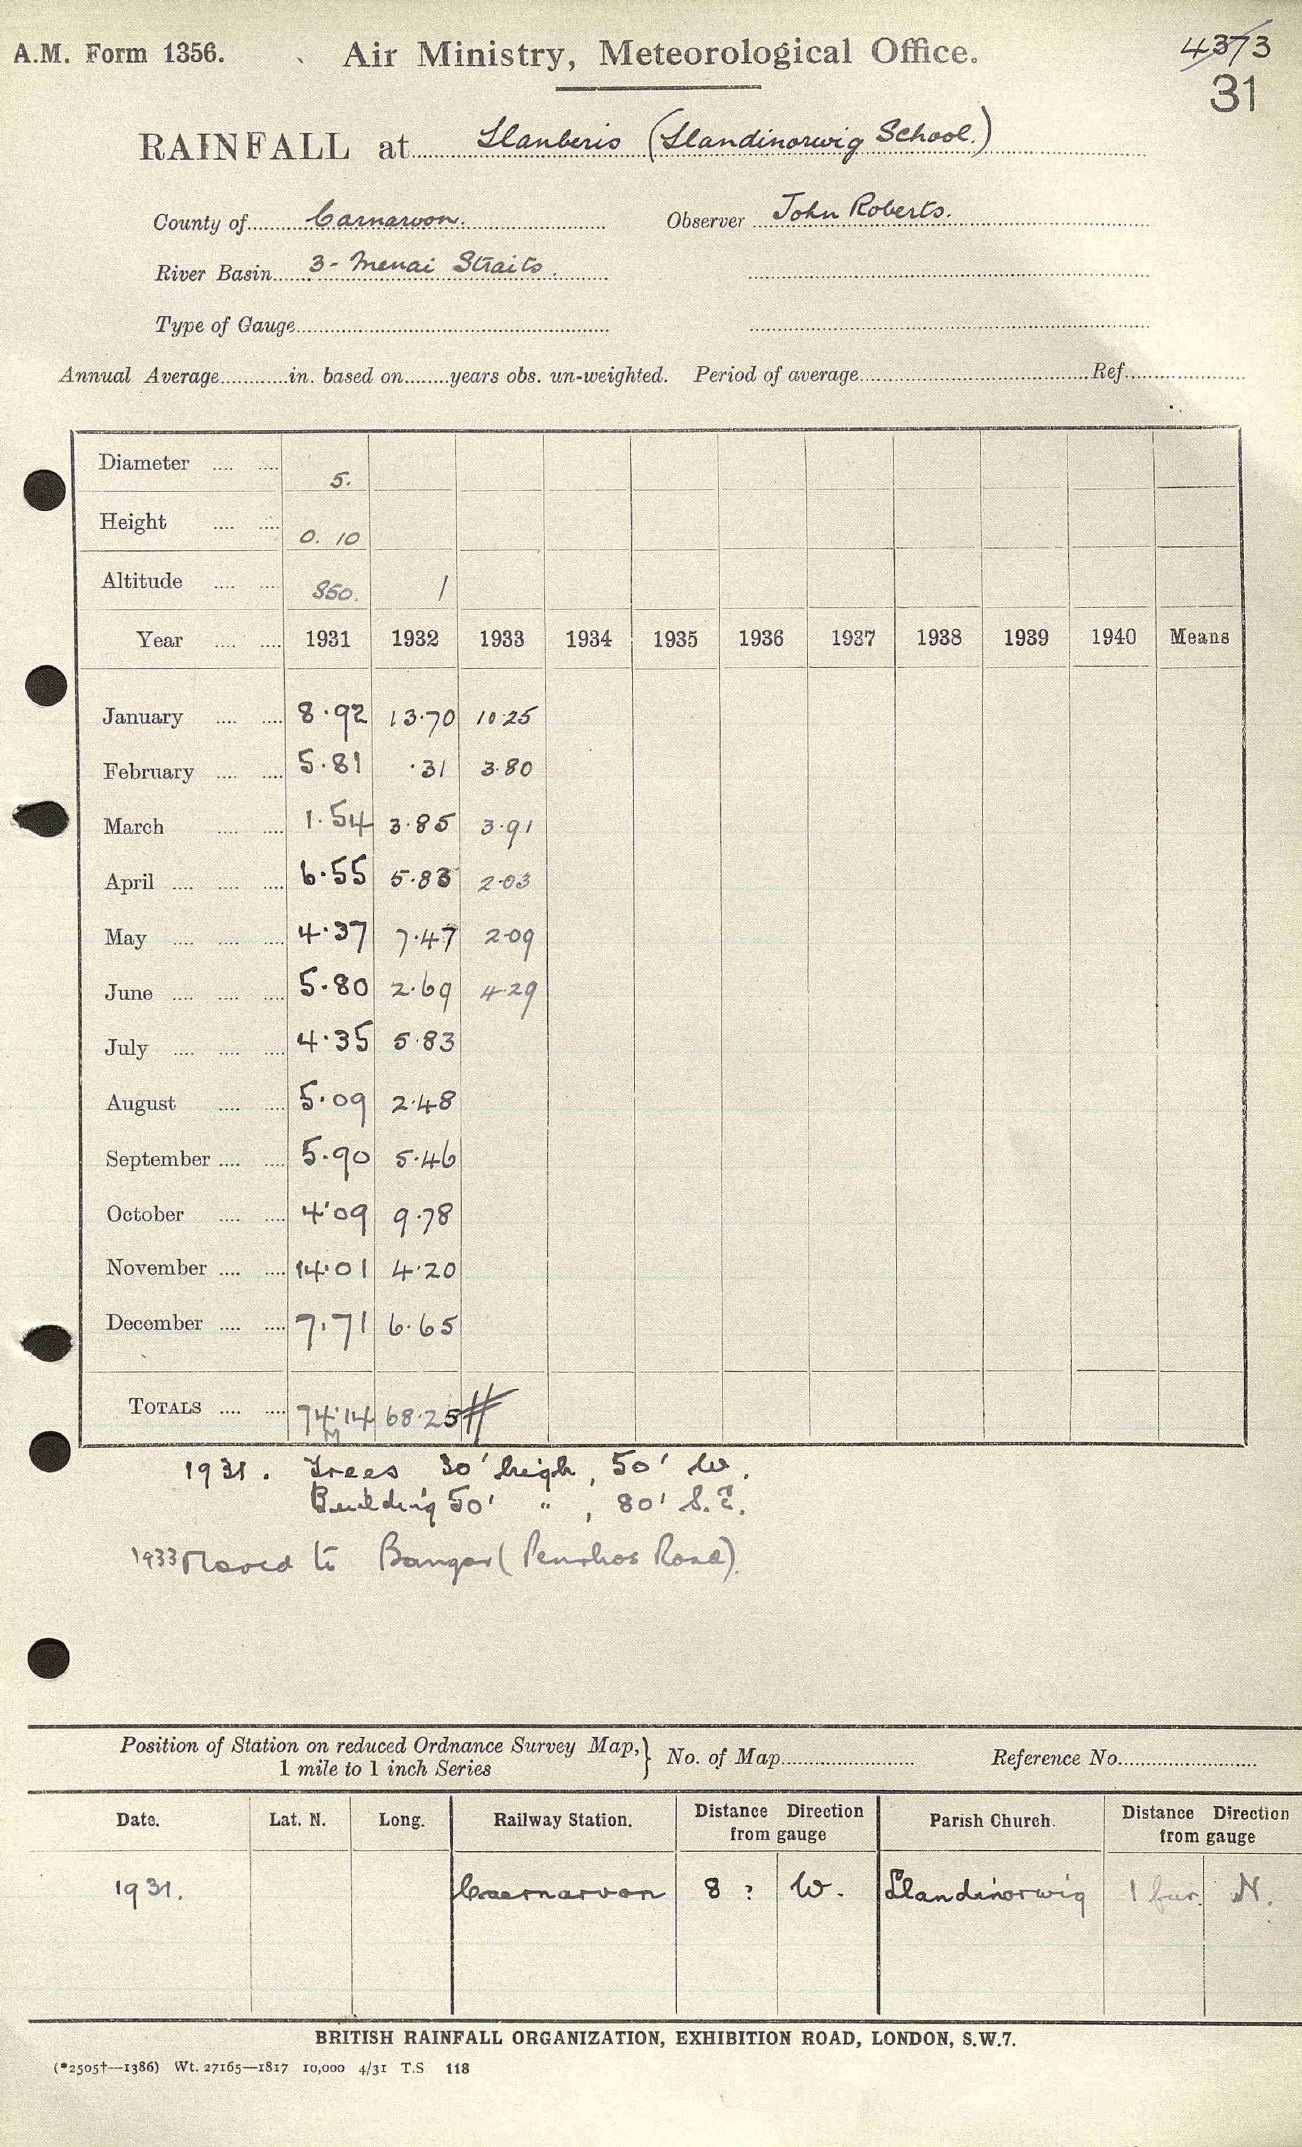 A.M. Form 1356. Air Ministry, Meteorological Office. 4373
31
RAINFALL at Llanberis (Llandinorwig School.)
County of Carnarvon. Observer John Roberts.
River Basin 3 - Menai Straits.
Type of Gauge
Annual Average in. based on years obs. un-weighted. Period of average Ref.
Diameter 5.
Height 0. 10
Altitude 850. /
Year 1931 1932 1933 1934 1935 1936 1937 1938 1939 1940 Means
January 8.92 13.70 10.25
February 5.81 .31 3.80
March 1.54 3.85 3.91
April 6.55 5.83 2.03
May 4.37 7.47 2.09
June 5.80 2.69 4.29
July 4.35 5.83
August 5.09 2.48
September 5.90 5.46
October 4.09 9.78
November 14.01 4.20
December 7.71 6.65
TOTALS 74.14 68.25 #
M
1931. Trees 30' high, 50' W.
Building 50' " , 80' S.E.
1933 Moved to Bangor (Penrhos Road).
Position of Station on reduced Ordnance Survey Map, } No. of Map Reference No.
1 mile to 1 inch Series
Date. Lat. N. Long. Railway Station. Distance Direction from gauge Parish Church. Distance Direction from gauge
1931. Caernarvon 8 ? W. Llandinorwig 1 fur. N.
BRITISH RAINFALL ORGANIZATION, EXHIBITION ROAD, LONDON, S.W.7.
(*2505†—1386) Wt. 27165—1817 10,000 4/31 T.S 118